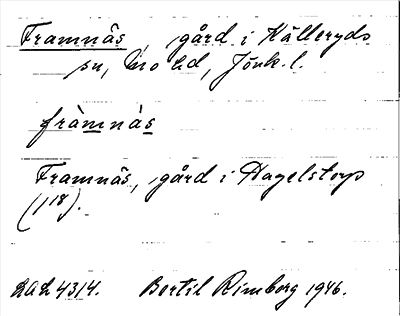 Framnäs, gård i Källeryds
sn, Mo hd, Jönk. l.
fràmnä̀s
Framnäs, gård i Hagelstorp
(1¹⁸).
LAL 4314. Bertil Rimborg 1946.